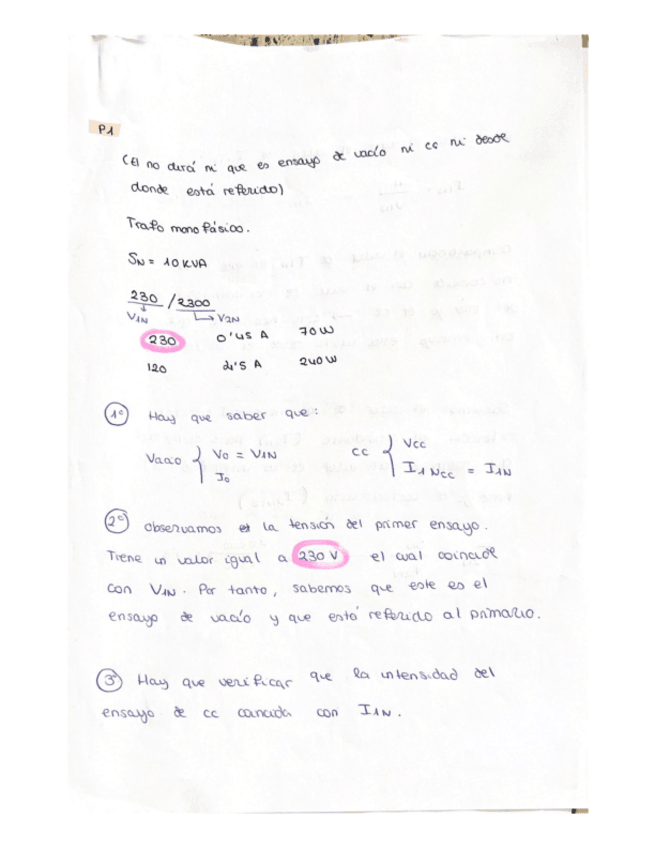 P1
(El no dirá ni que es ensayo de vacío ni cc ni desde
donde está referido)
Trafo monofásico.
SN = 10 KVA
230 / 2300
V1N V2N
230 0'45 A 70 W
120 4'5 A 240 W
1º Hay que saber que:
Vacío { V0 = V1N cc { Vcc
I0 I1Ncc = I1N
2º Observamos la tensión del primer ensayo.
Tiene un valor igual a 230 V el cual coincide
con V1N. Por tanto, sabemos que este es el
ensayo de vacío y que está referido al primario.
3º Hay que verificar que la intensidad del
ensayo de cc coincida con I1N.